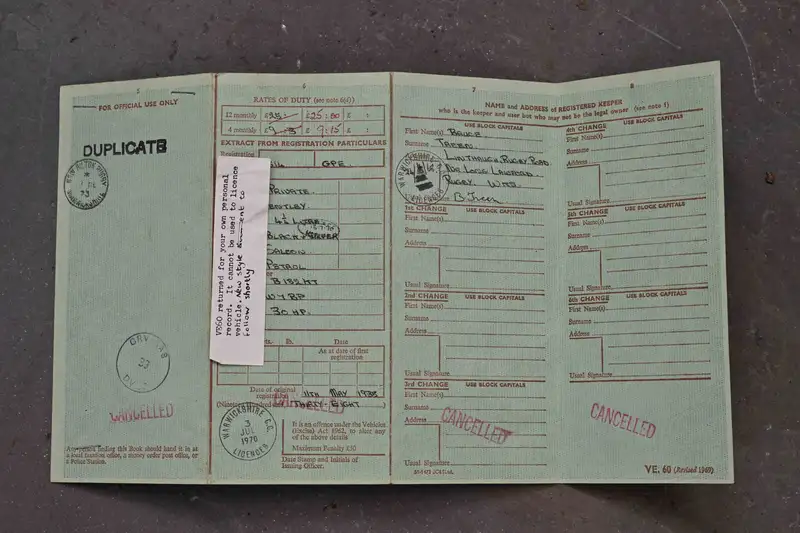 5
FOR OFFICIAL USE ONLY
DUPLICATE
CANCELLED
Any person finding this Book should hand it in at
a local taxation office, a money order post office, or
a Police Station.
6
RATES OF DUTY (see note 6(d))
12 monthly £25: £25:00 £ :
4 monthly £9 £9:15 £ :
EXTRACT FROM REGISTRATION PARTICULARS
Registration
GPE
PRIVATE.
BENTLEY
4¼ LITRE
BLACK
SALOON
PETROL
B152HT
30 HP.
V860 returned for your own personal
record. It cannot be used to licence
vehicle. New style
follow shortly
Date
As at date of first
registration
Date of original
registration 11TH MAY 1938
THIRTY-EIGHT
CANCELLED
WARWICKSHIRE C.C.
3
JUL
1970
LICENCES
It is an offence under the Vehicles
(Excise) Act 1962, to alter any
of the above details
Maximum Penalty £50
Date Stamp and Initials of
Issuing Officer.
7
8
NAME and ADDRESS of REGISTERED KEEPER
who is the keeper and user but who may not be the legal owner (see note 1)
USE BLOCK CAPITALS
First Name(s) BRUCE
Surname
Address
RUGBY
WARWICKSHIRE
Usual Signature
1st CHANGE USE BLOCK CAPITALS
First Name(s)
Surname
Address
Usual Signature
2nd CHANGE USE BLOCK CAPITALS
First Name(s)
Surname
Address
Usual Signature
3rd CHANGE USE BLOCK CAPITALS
First Name(s)
Surname
Address
CANCELLED
Usual Signature
4th CHANGE USE BLOCK CAPITALS
First Name(s)
Surname
Address
Usual Signature
5th CHANGE USE BLOCK CAPITALS
First Name(s)
Surname
Address
Usual Signature
6th CHANGE USE BLOCK CAPITALS
First Name(s)
Surname
Address
Usual Signature
CANCELLED
VE. 60 (Revised 1969)